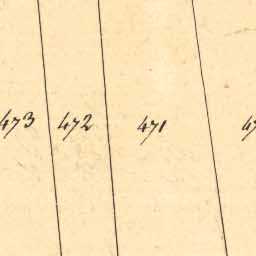 473 472 471